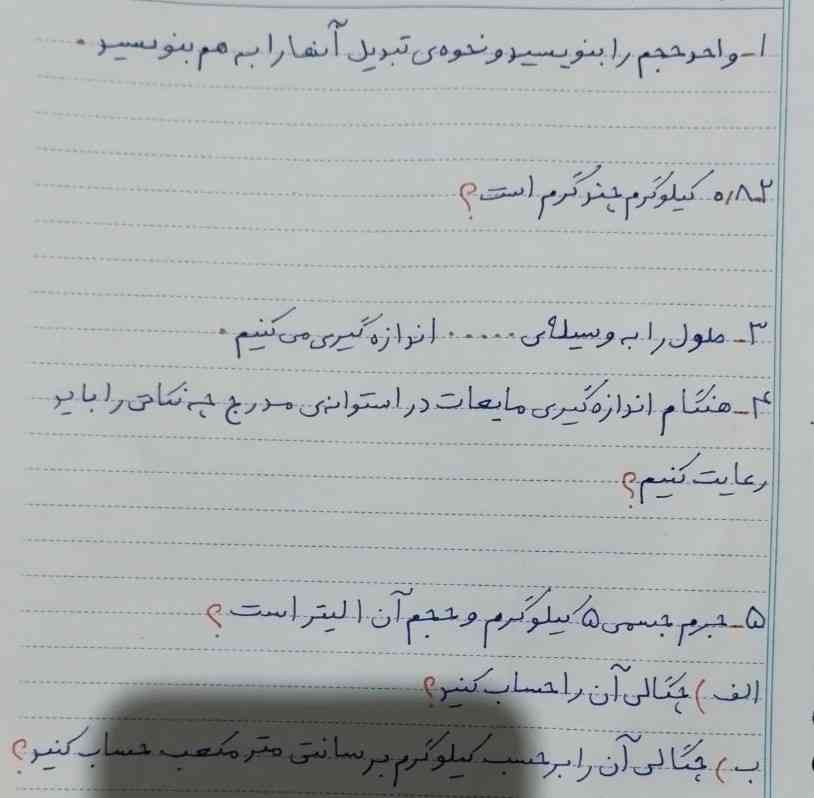 ۱- واحد حجم را بنویسید و نحوه‌ی تبدیل آنها را به هم بنویسید .
۲- ۰/۸ کیلوگرم چند گرم است؟
۳- طول را به وسیله‌ی ..... اندازه گیری می کنیم .
۴- هنگام اندازه گیری مایعات در استوانه‌ی مدرج چه نکاتی را باید
رعایت کنیم؟
۵- جرم جسمی ۵ کیلوگرم و حجم آن ۱ لیتر است؟
الف) چگالی آن را حساب کنید؟
ب) چگالی آن را برحسب کیلوگرم بر سانتی متر مکعب حساب کنید؟